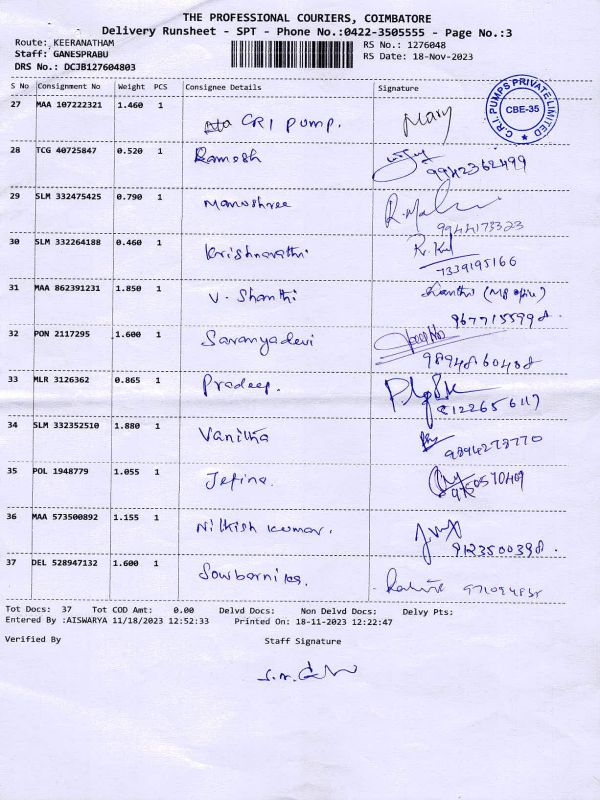 THE PROFESSIONAL COURIERS, COIMBATORE
Delivery Runsheet - SPT - Phone No.:0422-3505555 - Page No.:3
Route: KEERANATHAM
Staff: GANESPRABU
DRS No.: DCJB127604803
RS No.: 1276048
RS Date: 18-Nov-2023
S No Consignment No Weight PCS Consignee Details Signature
27 MAA 107222321 1.460 1 CRI Pump. Mary
C.R.I. PUMPS PRIVATE LIMITED
CBE-35
28 TCG 40725847 0.520 1 Ramesh 9942362499
29 SLM 332475425 0.790 1 Manushree 9944173323
30 SLM 332264188 0.460 1 Krishnavathi 7339195166
31 MAA 862391231 1.850 1 V. Shanthi
9677155998.
32 PON 2117295 1.600 1 Saranyadevi
9894860408
33 MLR 3126362 0.865 1 Pradeep. 8122656117
34 SLM 332352510 1.880 1 Vanitha 9894278770
35 POL 1948779 1.055 1 Jefina.
36 MAA 573500892 1.155 1 Nilkish kumar. 9123500398.
37 DEL 528947132 1.600 1 Sowbarnika.
Tot Docs: 37 Tot COD Amt: 0.00 Delvd Docs: Non Delvd Docs: Delvy Pts:
Entered By :AISWARYA 11/18/2023 12:52:33 Printed On: 18-11-2023 12:22:47
Verified By Staff Signature